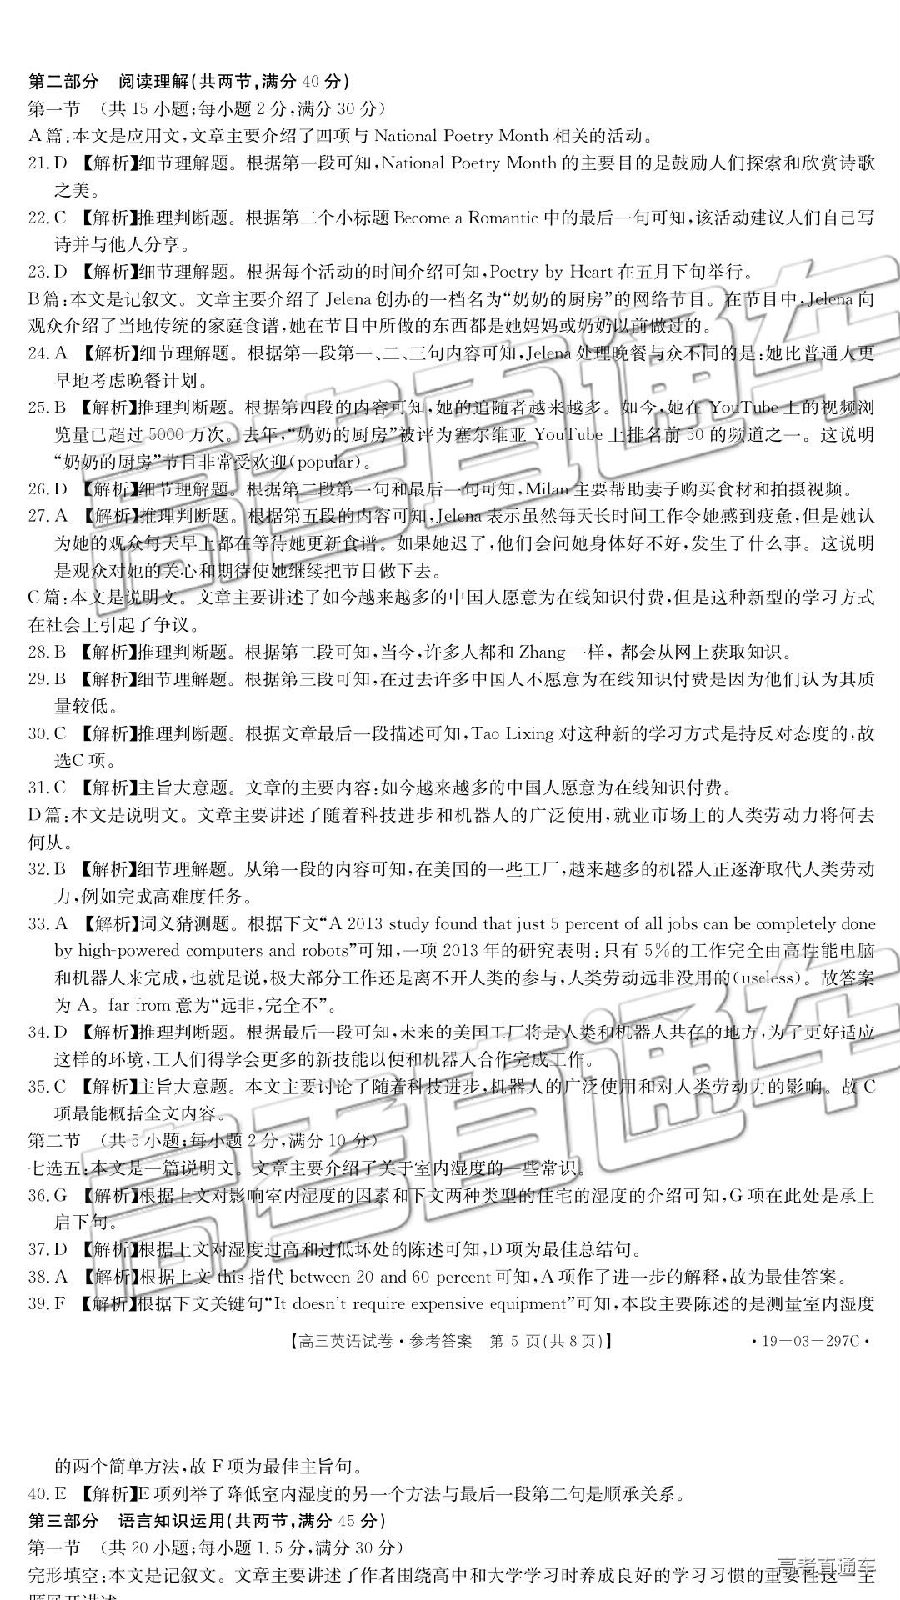 第二部分 阅读理解(共两节,满分 40 分)
第一节 (共 15 小题;每小题 2 分,满分 30 分)
A 篇:本文是应用文,文章主要介绍了四项与 National Poetry Month 相关的活动。
21. D 【解析】细节理解题。根据第一段可知,National Poetry Month 的主要目的是鼓励人们探索和欣赏诗歌
之美。
22. C 【解析】推理判断题。根据第二个小标题 Become a Romantic 中的最后一句可知,该活动建议人们自己写
诗并与他人分享。
23. D 【解析】细节理解题。根据每个活动的时间介绍可知,Poetry by Heart 在五月下旬举行。
B 篇:本文是记叙文。文章主要介绍了 Jelena 创办的一档名为“奶奶的厨房”的网络节目。在节目中,Jelena 向
观众介绍了当地传统的家庭食谱,她在节目中所做的东西都是她妈妈或奶奶以前做过的。
24. A 【解析】细节理解题。根据第一段第一、二、三句内容可知,Jelena 处理晚餐与众不同的是:她比普通人更
早地考虑晚餐计划。
25. B 【解析】推理判断题。根据第四段的内容可知,她的追随者越来越多。如今,她在 YouTube 上的视频浏
览量已超过 5000 万次。去年,“奶奶的厨房”被评为塞尔维亚 YouTube 上排名前 30 的频道之一。这说明
“奶奶的厨房”节目非常受欢迎(popular)。
26. D 【解析】细节理解题。根据第三段第一句和最后一句可知,Milan 主要帮助妻子购买食材和拍摄视频。
27. A 【解析】推理判断题。根据第五段的内容可知,Jelena 表示虽然每天长时间工作令她感到疲惫,但是她认
为她的观众每天早上都在等待她更新食谱。如果她迟了,他们会问她身体好不好,发生了什么事。这说明
是观众对她的关心和期待使她继续把节目做下去。
C 篇:本文是说明文。文章主要讲述了如今越来越多的中国人愿意为在线知识付费,但是这种新型的学习方式
在社会上引起了争议。
28. B 【解析】推理判断题。根据第二段可知,当今,许多人都和 Zhang 一样, 都会从网上获取知识。
29. B 【解析】细节理解题。根据第三段可知,在过去许多中国人不愿意为在线知识付费是因为他们认为其质
量较低。
30. C 【解析】推理判断题。根据文章最后一段描述可知,Tao Lixing 对这种新的学习方式是持反对态度的,故
选C 项。
31. C 【解析】主旨大意题。文章的主要内容:如今越来越多的中国人愿意为在线知识付费。
D 篇:本文是说明文。文章主要讲述了随着科技进步和机器人的广泛使用,就业市场上的人类劳动力将何去
何从。
32. B 【解析】细节理解题。从第一段的内容可知,在美国的一些工厂,越来越多的机器人正逐渐取代人类劳动
力,例如完成高难度任务。
33. A 【解析】词义猜测题。根据下文“A 2013 study found that just 5 percent of all jobs can be completely done
by high-powered computers and robots”可知,一项 2013 年的研究表明:只有 5%的工作完全由高性能电脑
和机器人来完成,也就是说,极大部分工作还是离不开人类的参与,人类劳动远非没用的(useless)。故答案
为 A。far from 意为“远非,完全不”。
34. D 【解析】推理判断题。根据最后一段可知,未来的美国工厂将是人类和机器人共存的地方,为了更好适应
这样的环境,工人们得学会更多的新技能以便和机器人合作完成工作。
35. C 【解析】主旨大意题。本文主要讨论了随着科技进步,机器人的广泛使用和对人类劳动力的影响。故 C
项最能概括全文内容。
第二节 (共 5 小题;每小题 2 分,满分 10 分)
七选五:本文是一篇说明文。文章主要介绍了关于室内湿度的一些常识。
36. G 【解析】根据上文对影响室内湿度的因素和下文两种类型的住宅的湿度的介绍可知,G 项在此处是承上
启下句。
37. D 【解析】根据上文对湿度过高和过低坏处的陈述可知,D 项为最佳总结句。
38. A 【解析】根据上文 this 指代 between 20 and 60 percent 可知,A 项作了进一步的解释,故为最佳答案。
39. F 【解析】根据下文关键句“It doesn't require expensive equipment”可知,本段主要陈述的是测量室内湿度
【高三英语试卷·参考答案 第 5 页(共 8 页)】 ·19-03-297C·
的两个简单方法,故 F 项为最佳主旨句。
40. E 【解析】E 项列举了降低室内湿度的另一个方法与最后一段第二句是顺承关系。
第三部分 语言知识运用(共两节,满分 45 分)
第一节 (共 20 小题;每小题 1.5 分,满分 30 分)
完形填空:本文是记叙文。文章主要讲述了作者围绕高中和大学学习时养成良好的学习习惯的重要性这一主
题展开讲述。
高考直通车
高考直通车
高考直通车